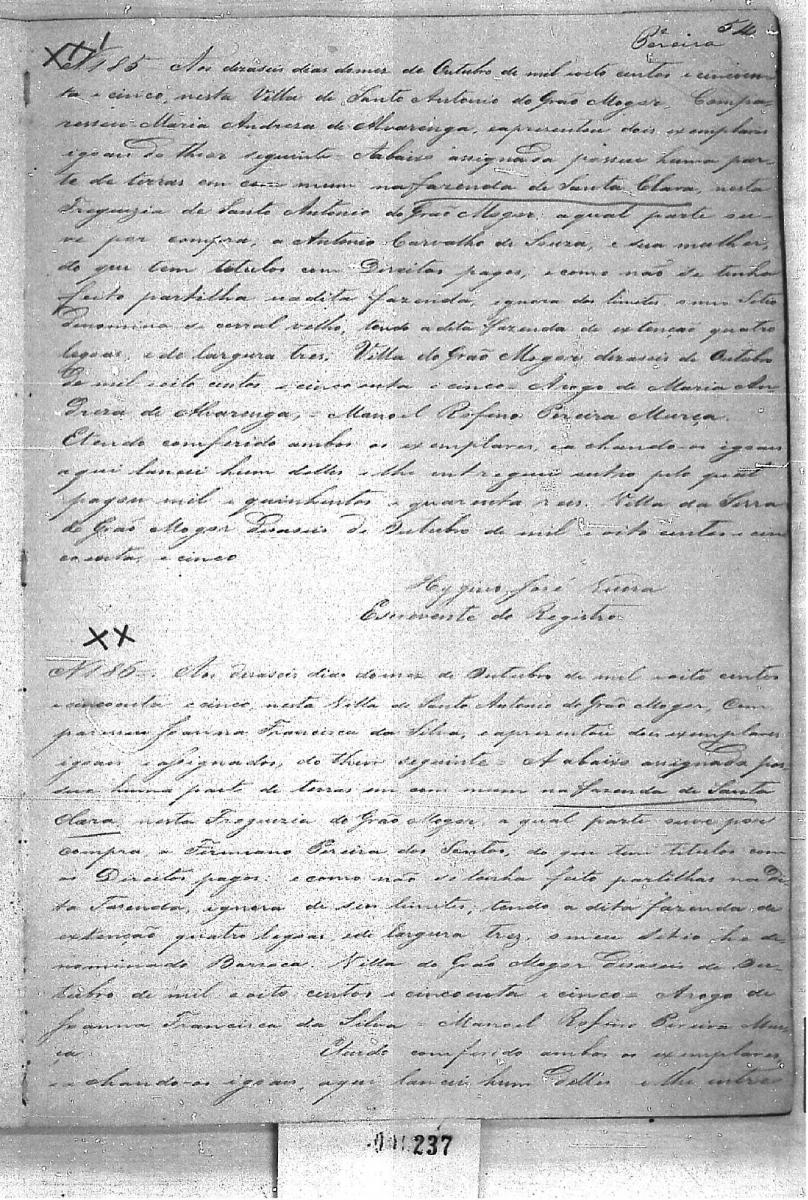 54
Pereira
N 185 Aos deraseis dias domez de Outubro de mil eoito centos e cincoen-
ta e cinco, nesta Villa de Santo Antonio do Grão Mogor, Compa-
resseu Maria Andreza de Alvarenga, eaprezentou dois exemplares
igoais do thior seguinte = Aabaixo assignada possue huma par-
te de terras em com mum nafazenda de Santa Clara, nesta
Freguizia de Santo Antonio do Grão Mogor, aqual parte ou-
ve por compra, a Antonio Carvalho de Souza, e sua mulher,
do que tem titulos com Direitos pagos; ecomo não se tenha
feito partilha nadita fazenda, ignora dos limites omeu Sitio
denomina se corral velho, tendo adita fazenda de extenção quatro
legoas, ede largura tres. Villa do Grão Mogor deraseis de Outubro
de mil eoito centos ecincoenta e cinco = Arogo de Maria An-
dreza de Alvarenga, = Manoel Rofino Pereira Murça.
Etendo comferido ambos os exemplares, ea chando-os igoais
aqui lancei hum delles elhe entreguei outro pelo qual
pagou mil e quinhentos e quarenta reis. Villa da Serra
de Grão Mogor deraseis de Outubro de mil e oito centos e cin
coenta, e cinco
Hygino José
Escrevente do Registro
N 186 = Aos deraseis dias domez de Outubro de mil eoito centos
ecincoenta e cinco, nesta Villa de Santo Antonio do Grão Mogor, Com
pareseu Joanna Francisca da Silva, eaprezentou dois exemplares
igoais eassignados, do thior seguinte = A abaixo assignada pos-
sue huma parte de terras em com mum nafazenda de Santa
Clara, nesta Freguizia do Grão Mogor, a qual parte ouve por
compra, a Firmiano Pereira dos Santos, do que tem titulos com
os Direitos pagos; ecomo não se tenha feito partilhas na di
ta Fasenda, ignora de seu limites, tendo a dita fazenda de
extenção quatro legoas, ede largura trez, omeu sitio he de
nominado Barroca. Villa do Grão Mogor deraseis de Ou-
tubro de mil eoito centos ecincoenta e cinco = Arogo de
Joanna Francisca da Silva = Manoel Rofino Pereira Mur
ça Etendo comferido ambos os exemplares,
ea chando-os igoais, aqui lancei hum delles elhe entre
237